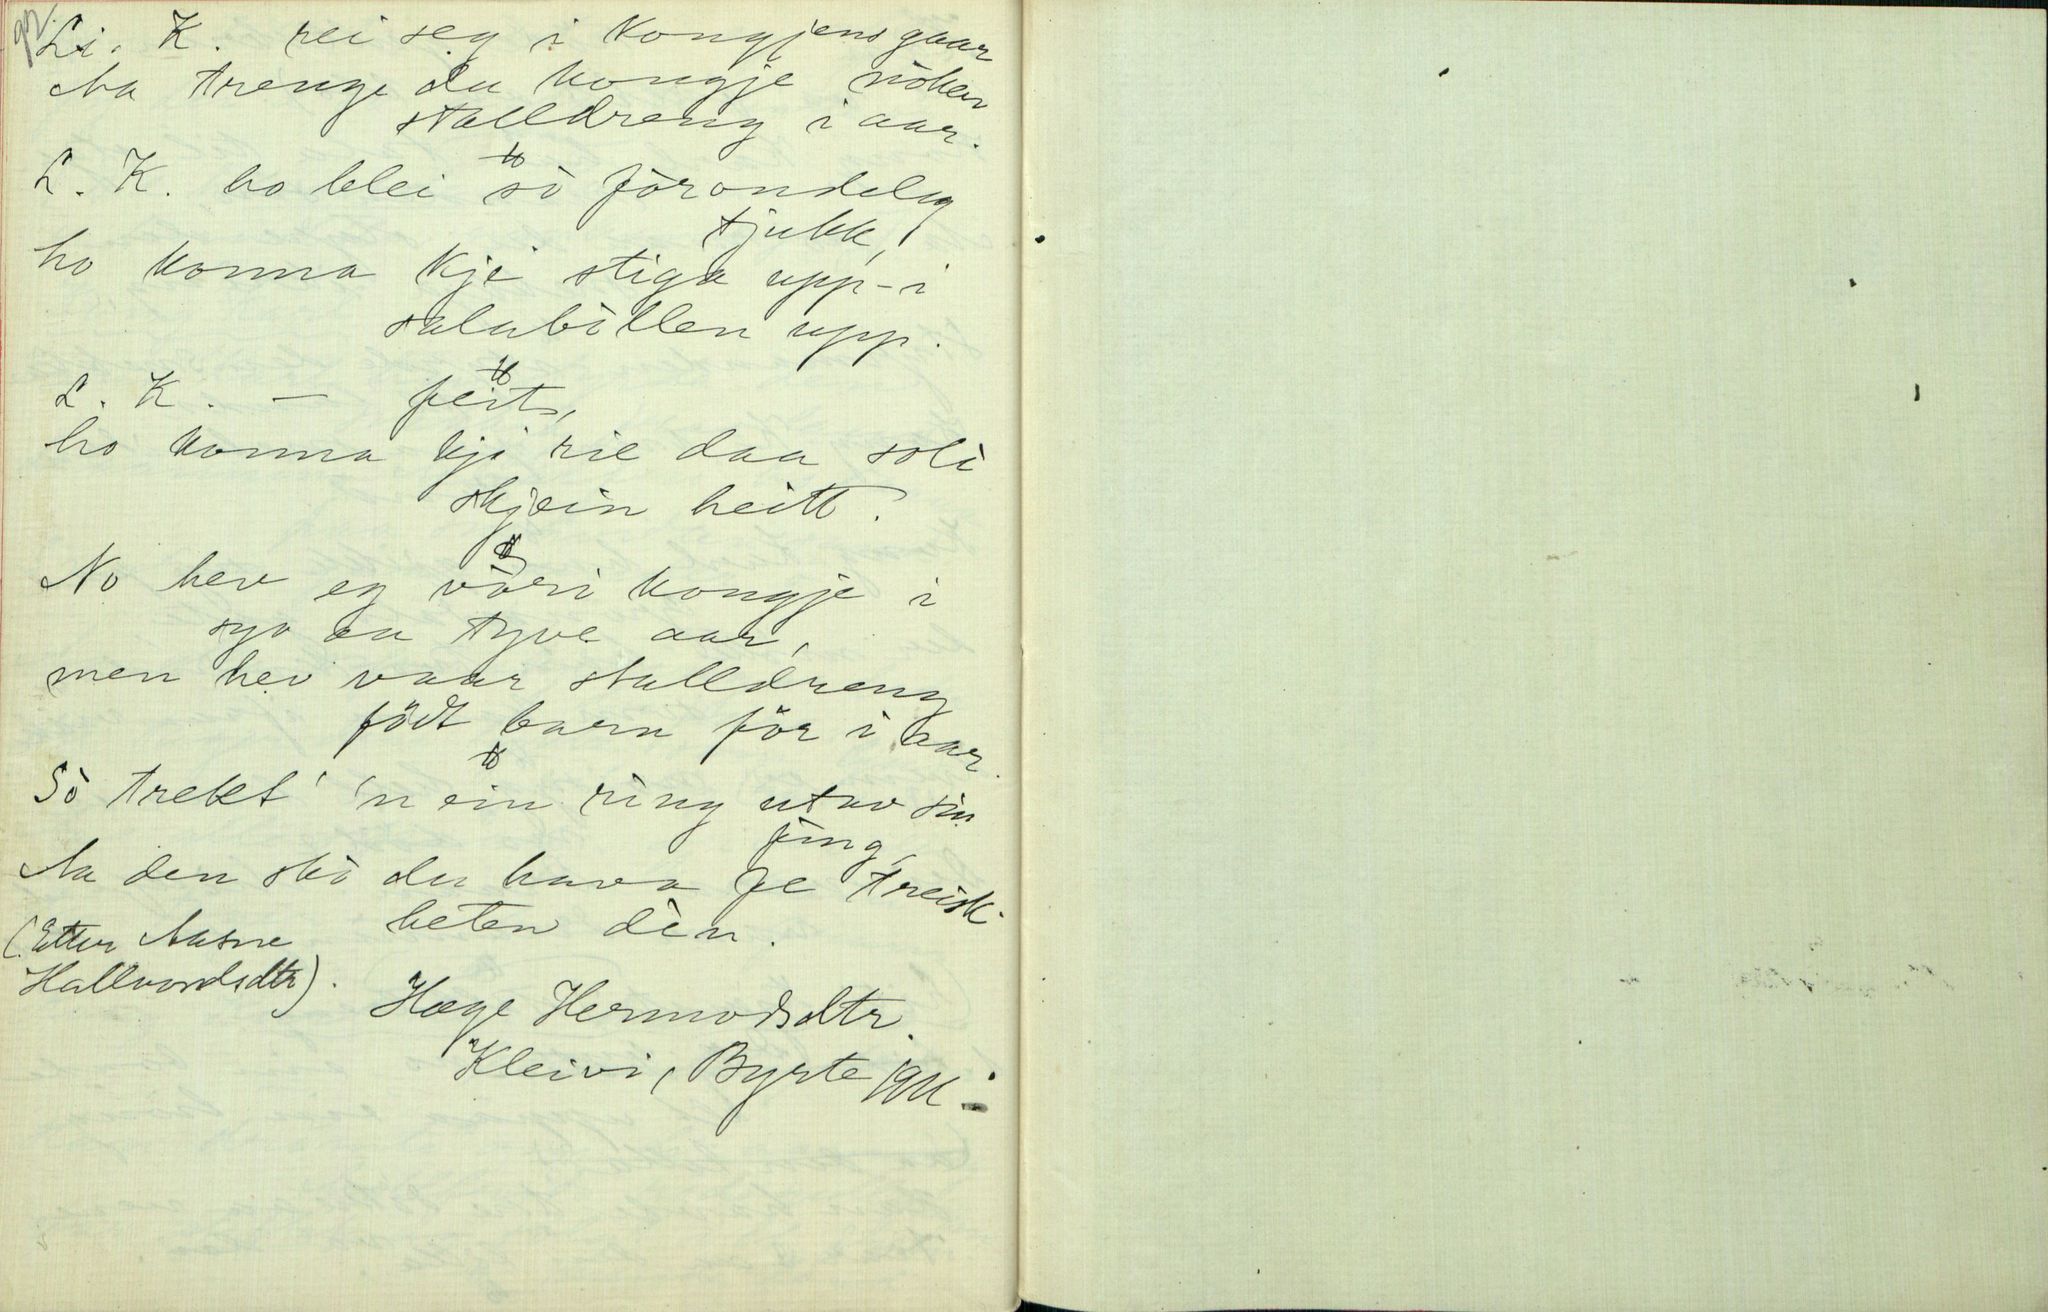 92.
Li. K. rei seg i kongjens gaar
Aa trenge du kongje nòken
stalldreng i aar.
L. K. ho blei sò fòrondeleg
tjukk,
ho konna kje stiga upp-i
salubìllen upp.
L. K. — feit,
ho konna kje rie daa soli
skjein heitt.
No hev eg vòri kongje i
syv aa tyve aar,
men hev vaar stalldreng
födt barn för i aar.
Sò trekt' 'n ein ring utav sin
fing,
Aa den skò du hava fe treisk-
heten dìn.
(Etter Aasne
Hallvordsdtr).
Hæge Hermodsdtr.
Kleivi, Byrte 1911.